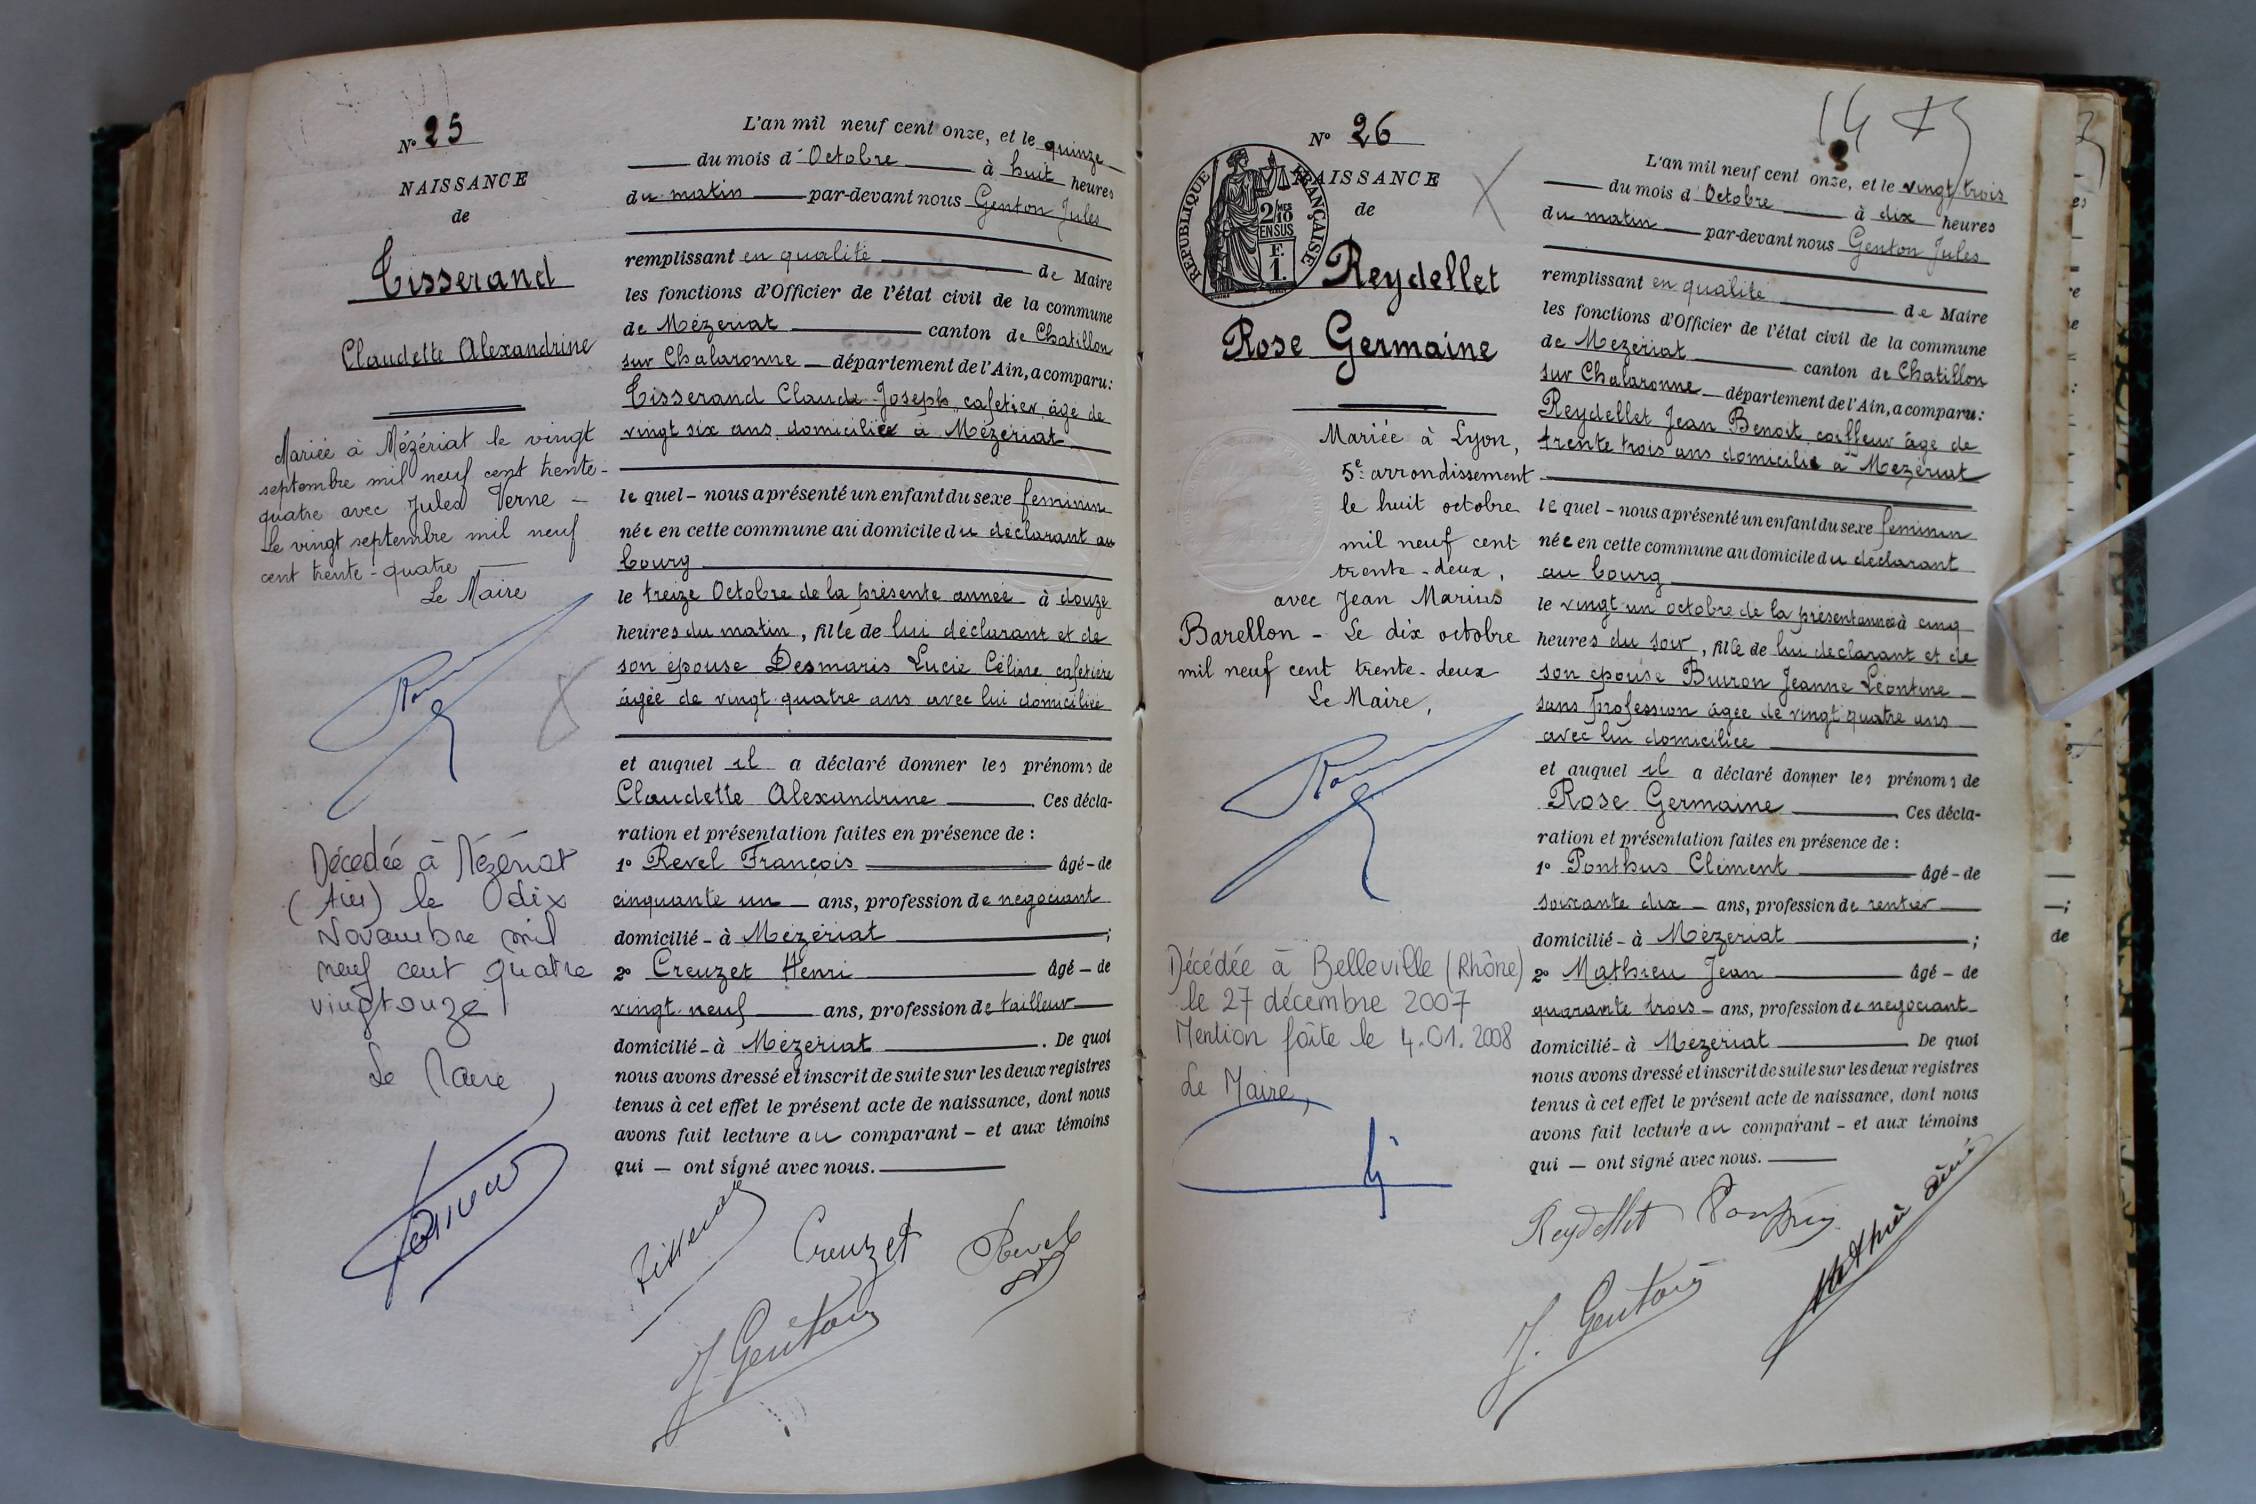 N° 25
NAISSANCE
de
Tisserand
Claudette Alexandrine
Mariée à Mézériat le vingt
septembre mil neuf cent trente-
quatre avec Jules Verne –
Le vingt septembre mil neuf
cent trente-quatre
Le Maire
Décédée à Mézériat
(Ain) le dix
Novembre mil
neuf cent quatre
vingt onze
Le Maire
L'an mil neuf cent onze, et le quinze
du mois d'Octobre à huit heures
du matin par-devant nous Genton Jules
remplissant en qualité de Maire
les fonctions d'Officier de l'état civil de la commune
de Mézériat canton de Chatillon
sur Chalaronne département de l'Ain, a comparu:
Tisserand Claude Joseph, cafetier âgé de
vingt six ans domicilié à Mézériat
lequel – nous a présenté un enfant du sexe féminin
née en cette commune au domicile du déclarant au
bourg
le treize Octobre de la présente année à douze
heures du matin, fille de lui déclarant et de
son épouse Desmaris Lucie Céline cafetière
âgée de vingt-quatre ans avec lui domiciliée
et auquel il a déclaré donner les prénoms de
Claudette Alexandrine. Ces décla-
ration et présentation faites en présence de :
1° Revel François âgé – de
cinquante un – ans, profession de négociant
domicilié – à Mézériat ;
2° Creuzet Henri âgé – de
vingt-neuf ans, profession de tailleur
domicilié – à Mézériat. De quoi
nous avons dressé et inscrit de suite sur les deux registres
tenus à cet effet le présent acte de naissance, dont nous
avons fait lecture au comparant – et aux témoins
qui – ont signé avec nous.
Tisserand Creuzet Revel
J. Genton
N° 26
NAISSANCE
de
RÉPUBLIQUE FRANÇAISE
2/10 MES
EN SUS
F.
1.
Reydellet
Rose Germaine
Mariée à Lyon,
5e arrondissement
le huit octobre
mil neuf cent
trente-deux,
avec Jean Marius
Barellon – Le dix octobre
mil neuf cent trente-deux
Le Maire,
Décédée à Belleville (Rhône)
le 27 décembre 2007
Mention faite le 4.01.2008
Le Maire,
L'an mil neuf cent onze, et le vingt trois
du mois d'Octobre à dix heures
du matin par-devant nous Genton Jules
remplissant en qualité de Maire
les fonctions d'Officier de l'état civil de la commune
de Mézériat canton de Chatillon
sur Chalaronne département de l'Ain, a comparu:
Reydellet Jean Benoit, coiffeur âgé de
trente trois ans domicilié à Mézériat
lequel – nous a présenté un enfant du sexe féminin
née en cette commune au domicile du déclarant
au bourg
le vingt-un octobre de la présent année à cinq
heures du soir, fille de lui déclarant et de
son épouse Buiron Jeanne Léontine
sans profession âgée de vingt-quatre ans
avec lui domiciliée
et auquel il a déclaré donner les prénoms de
Rose Germaine. Ces décla-
ration et présentation faites en présence de :
1° Ponthus Clément âgé – de
soixante dix – ans, profession de rentier
domicilié – à Mézériat ;
2° Mathieu Jean âgé – de
quarante trois – ans, profession de négociant
domicilié – à Mézériat De quoi
nous avons dressé et inscrit de suite sur les deux registres
tenus à cet effet le présent acte de naissance, dont nous
avons fait lecture au comparant – et aux témoins
qui – ont signé avec nous.
Reydellet Ponthus Mathieu aîné
J. Genton